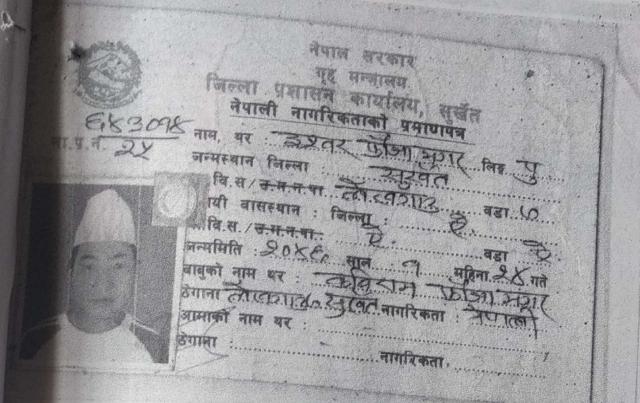 नेपाल सरकार
गृह मन्त्रालय
जिल्ला प्रशासन कार्यालय, सुर्खेत
नेपाली नागरिकताको प्रमाणपत्र
६४३०१४
ना.प्र.नं. २५
नाम, थर ईश्वर फौजा मगर लिङ्ग पु
जन्मस्थान जिल्ला सुर्खेत
गा.वि.स/उ.म.न.पा. वडा ७
स्थायी वासस्थान : जिल्ला : ऐ.
गा.वि.स./उ.म.न.पा. ऐ. वडा ऐ
जन्ममिति २०४६ साल १ महिना २४ गते
बाबुको नाम थर : कविराम फौजा मगर
ठेगाना सुर्खेत नागरिकता : नेपाली
आमाको नाम थर :
ठेगाना : नागरिकता.